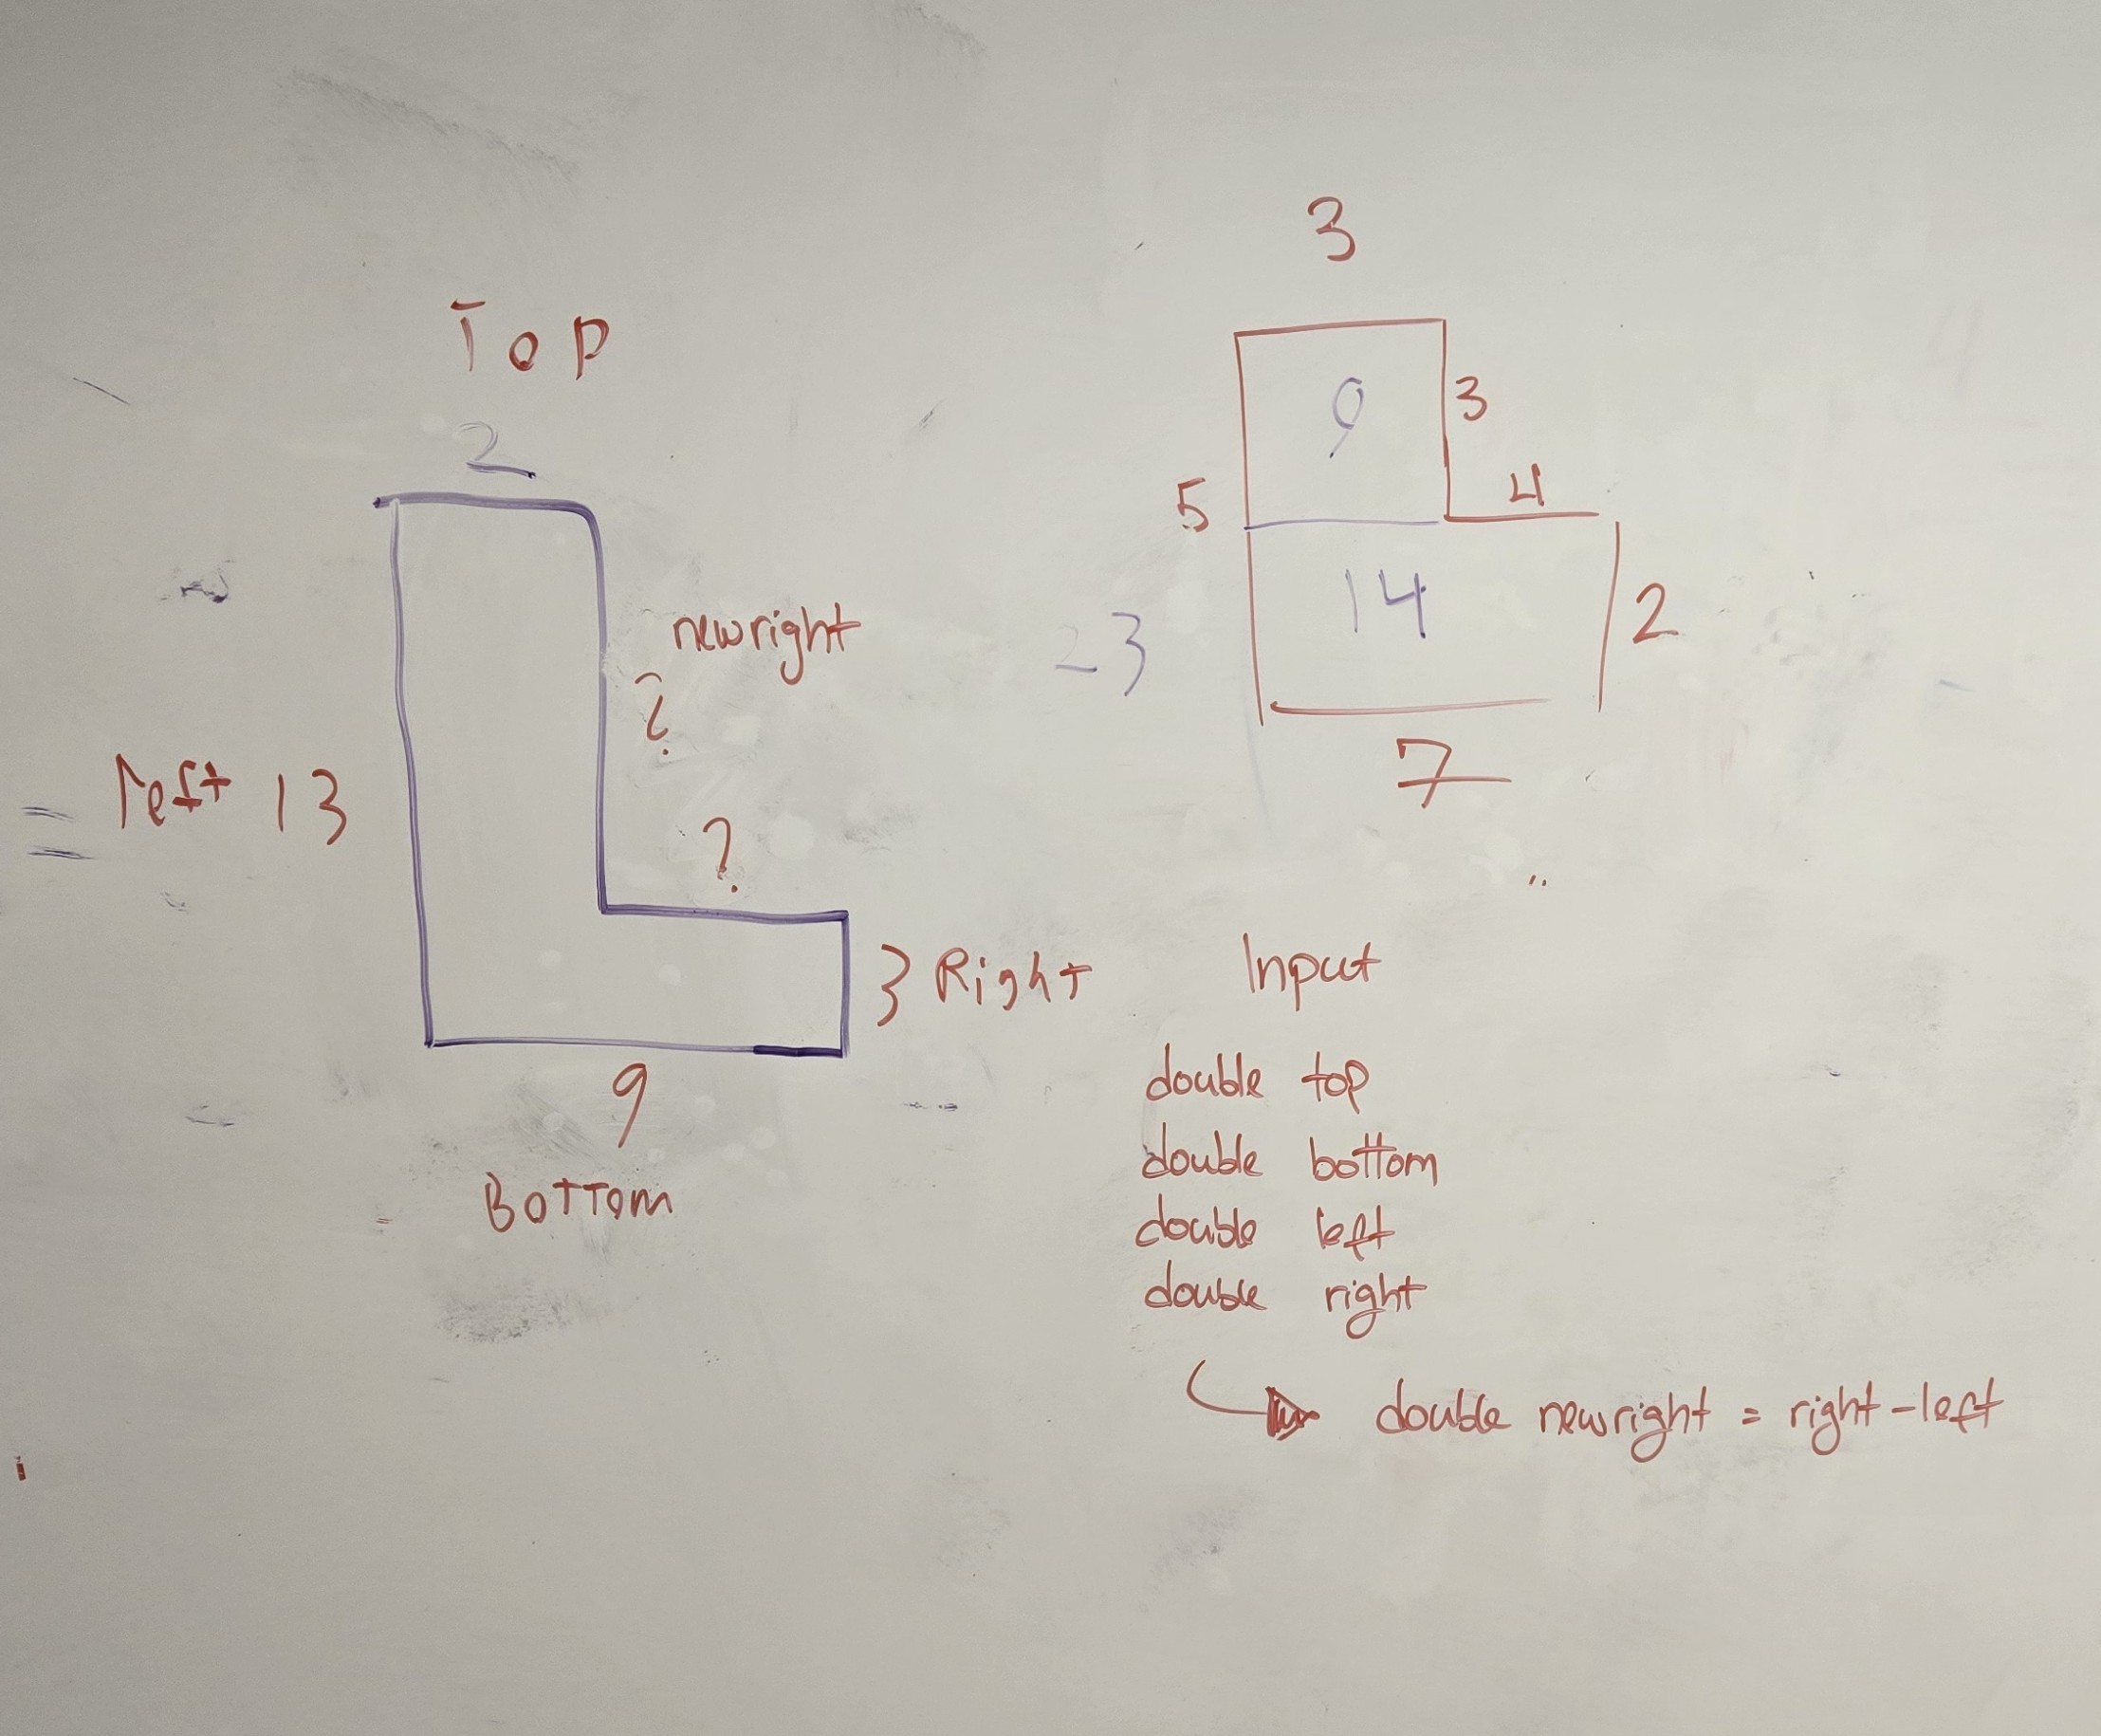 Top
2
newright
?
=
left 13
?
3 Right
9
Bottom
3
9
3
5
4
14
2
23
7
Input
double top
double bottom
double left
double right
double newright = right-left